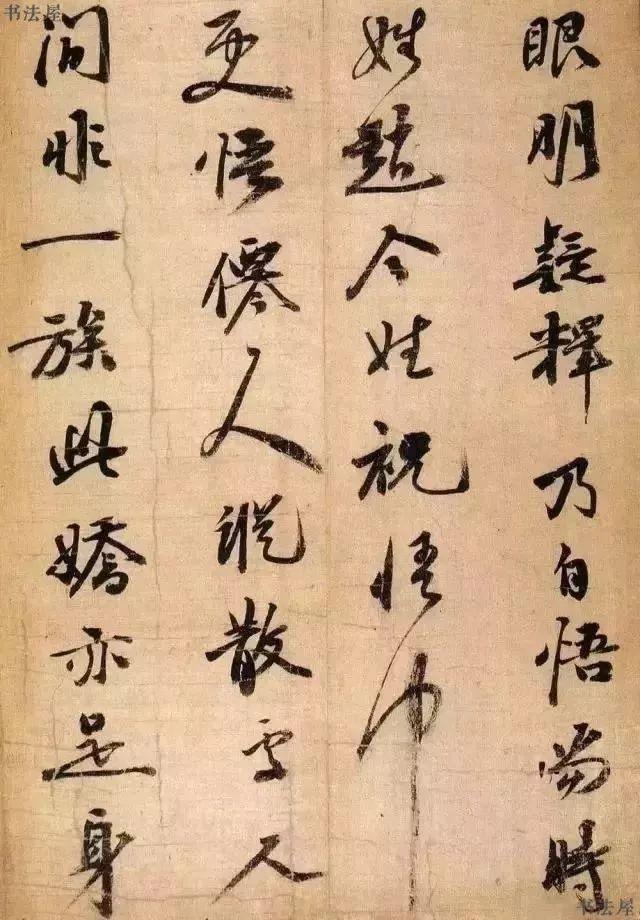 书法屋
眼明疑釋乃自悟當時
姓今姓祝悟中
更悟僊人散人
間非一族此嬌亦足身
书法屋